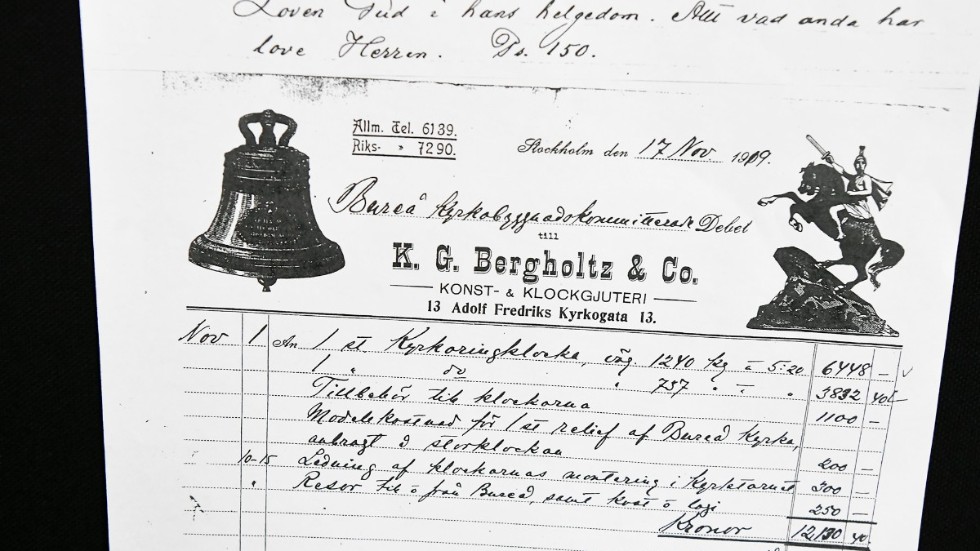 Loven Gud i hans helgedom. Allt vad anda har
love Herren. Ps. 150.
Allm. Tel. 6139.
Riks- " 7290.
Stockholm den 17 Nov 1909.
Bureå Kyrkobyggnadskommitterade Debet
till
K. G. Bergholtz & Co.
KONST- & KLOCKGJUTERI
13 Adolf Fredriks Kyrkogata 13.
Nov 1 An 1 st. Kyrkoringklocka, väg 1240 kg à 5:20 6448 —
1 " do " 737 " à " 3832 40
Tillbehör till klockorna 1100 —
Modellkostnad för 1 st relief af Bureå Kyrka,
anbragt å storklockan 200 —
10-15 Ledning af klockornas montering i Kyrktornet 300 —
" Resor till o från Bureå, samt kost o logi 250 —
Kronor 12,130 40